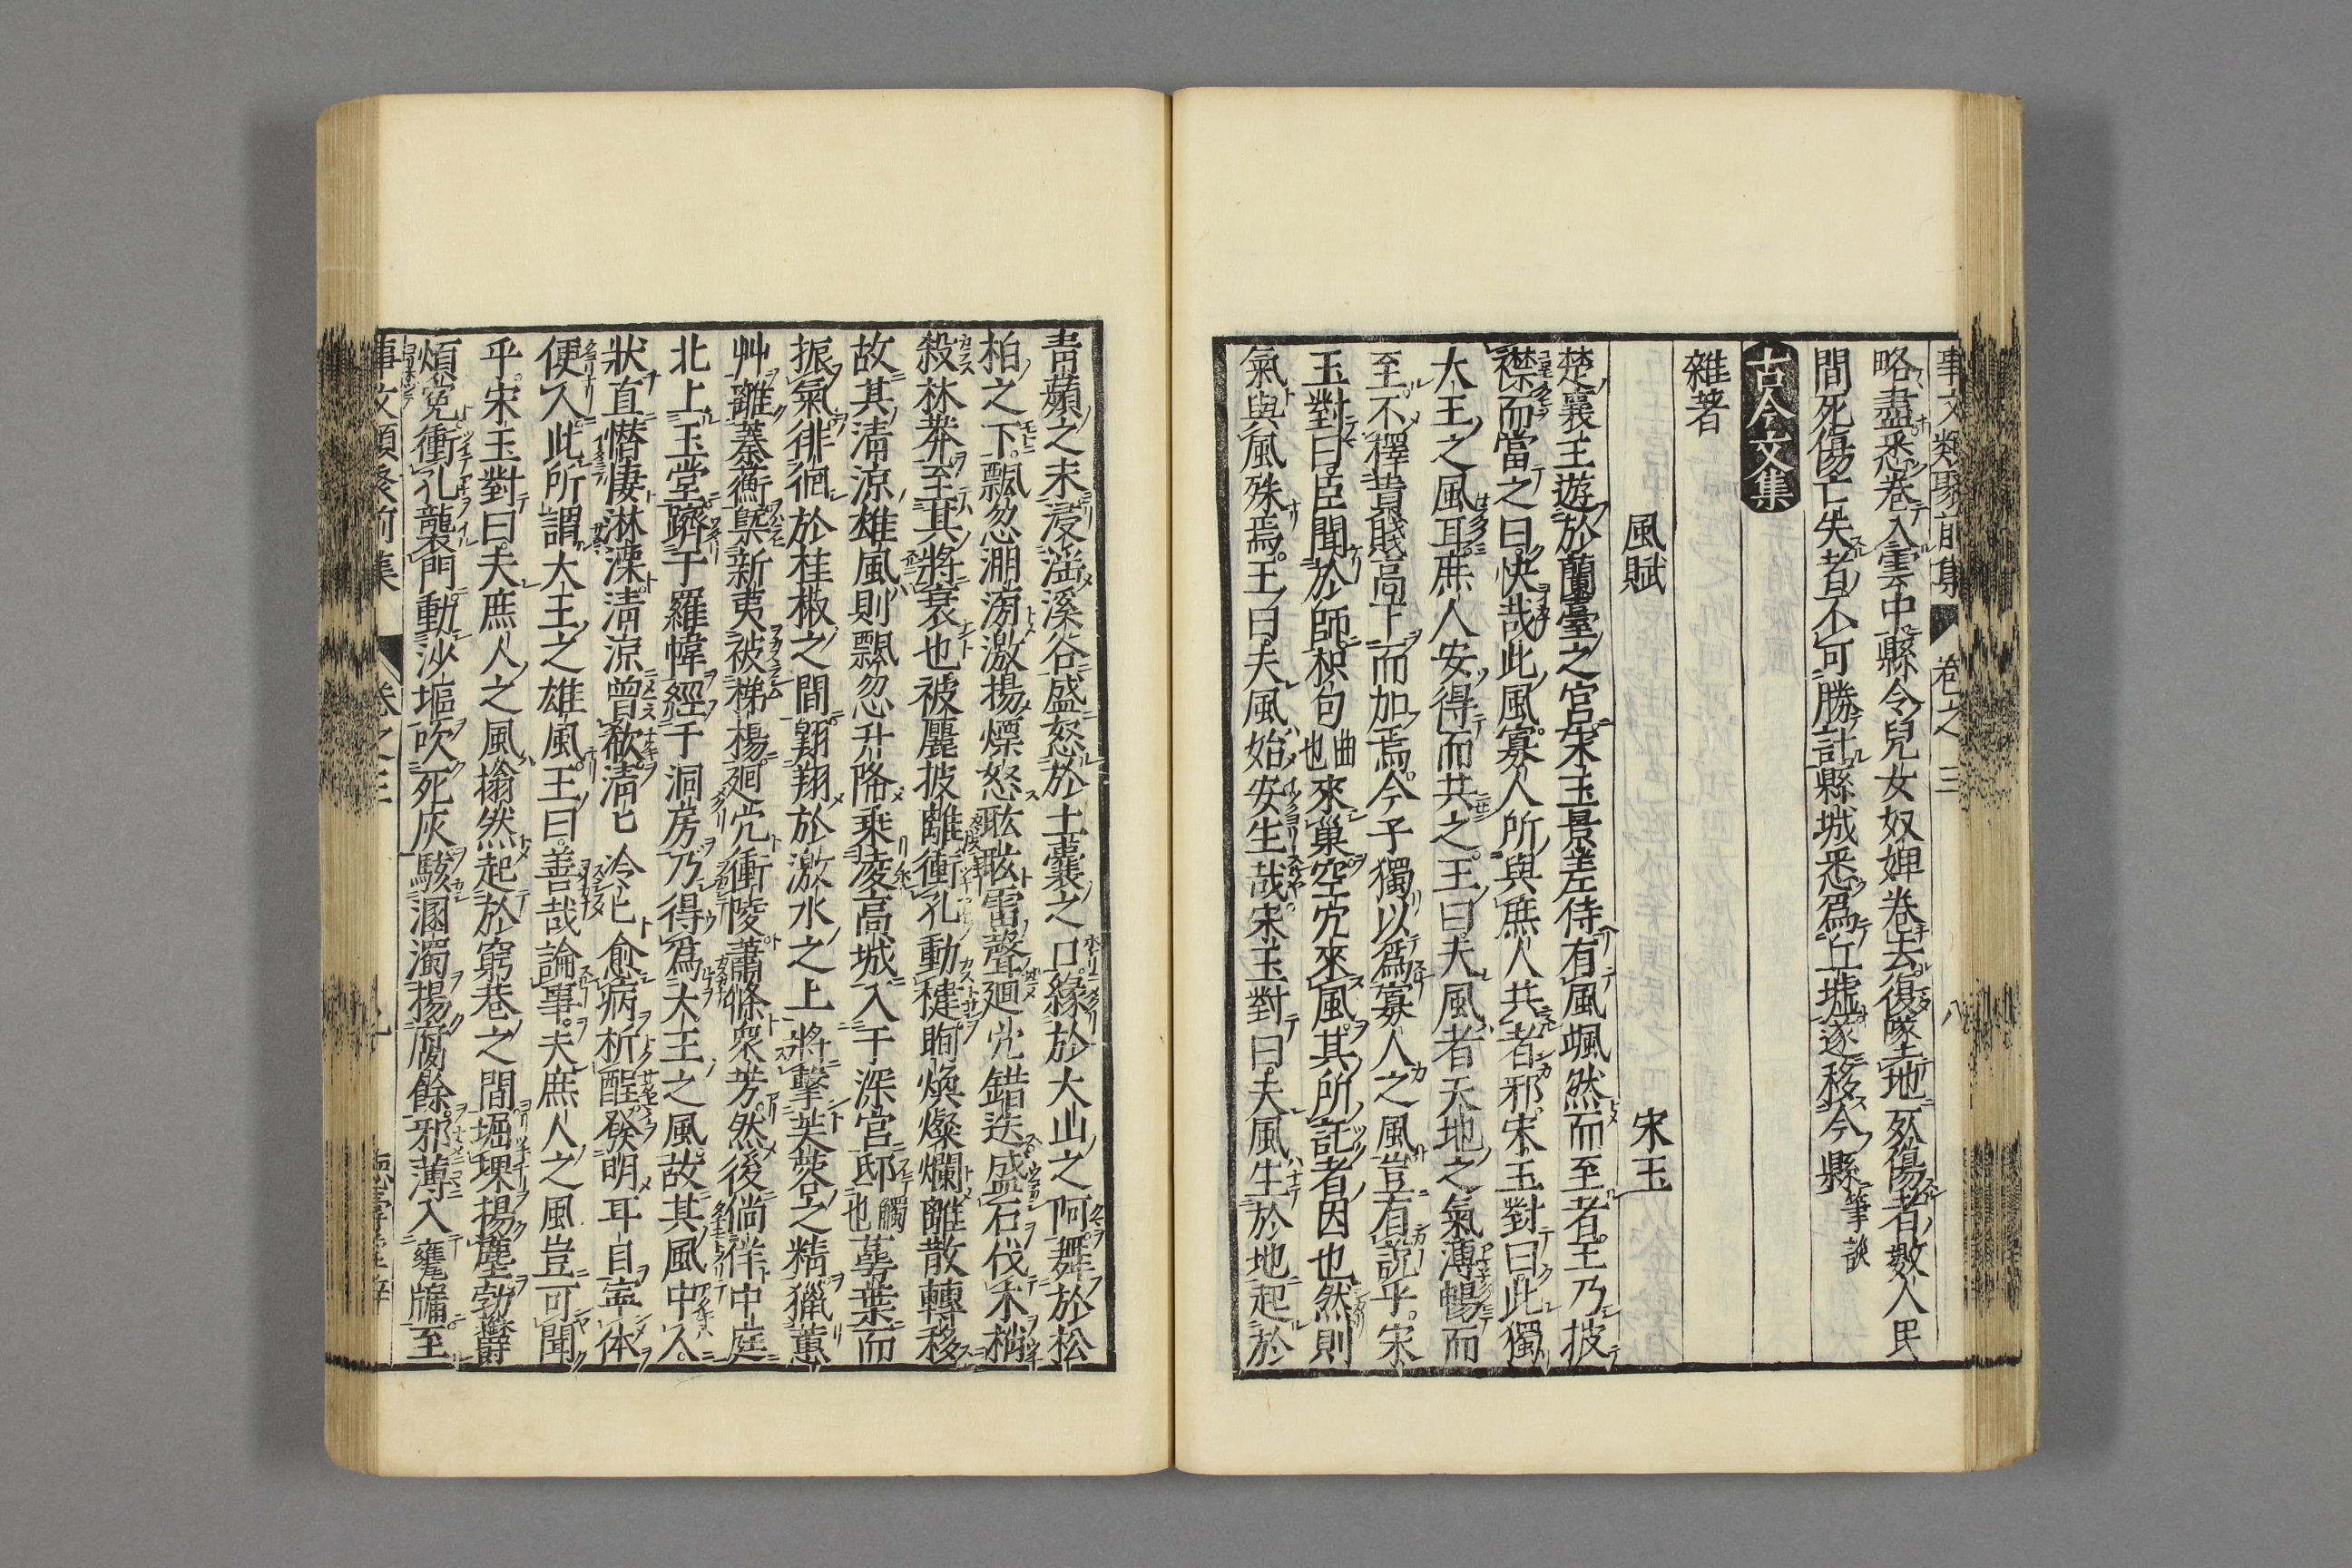 事文類聚前集 卷之三 八
略盡悉卷入雲中縣令兒女奴婢卷去復墜地死傷者數人民
間死傷亡失者不可勝計縣城悉爲丘墟遂移今縣筆談
古今文集
雜著
風賦 宋玉
楚襄王遊於蘭臺之宮宋玉景差侍有風颯然而至者王乃披
襟而當之曰快哉此風寡人所與庶人共者邪宋玉對曰此獨
大王之風耳庶人安得而共之王曰夫風者天地之氣溥暢而
至不擇貴賤高下而加焉今子獨以爲寡人之風豈有說乎宋
玉對曰臣聞於師枳句曲也來巢空穴來風其所託者因也然則
氣與風殊焉王曰夫風始安生哉宋玉對曰夫風生於地起於
青蘋之末浸淫溪谷盛怒於土囊之口緣於大山之阿舞於松
柏之下飄忽淜滂激揚熛怒耾耾雷聲廻穴錯迕盛石伐木梢
殺林莽至其將衰也被麗披離衝孔動楗眴煥燦爛離散轉移
故其清涼雄風則飄忽升降乘凌高城入于深宮邸觸也蕚葉而
振氣徘徊於桂椒之間翱翔於激水之上將擊芙蓉之精獵蕙
艸離蓁蘅槩新夷被稊楊廻穴衝陵蕭條衆芳然後倘佯中庭
北上玉堂躋于羅幃經于洞房乃得爲大王之風故其風中人
狀直憯悽淋溧清涼曾欷清匕冷匕愈病析酲發明耳目寧体
便人此所謂大王之雄風王曰善哉論事夫庶人之風豈可聞
乎宋玉對曰夫庶人之風塕然起於窮巷之間堀堁揚塵勃鬱
煩寃衝孔襲門動沙堀吹死灰駭溷濁揚腐餘邪薄入甕牖至
事文類聚前集 卷之三 九